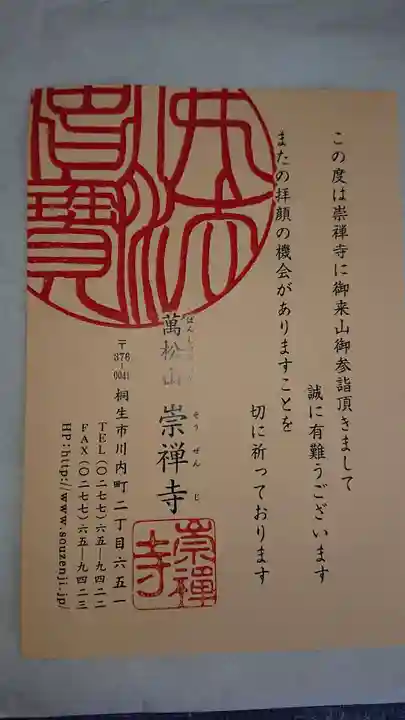 この度は崇禅寺に御来山御参詣頂きまして
誠に有難うございます
またの拝顔の機会がありますことを
切に祈っております
萬松山 崇禅寺
そうぜんじ
〒376-0041 桐生市川内町二丁目六五一
TEL(〇二七七)六五―九四二二
FAX(〇二七七)六五―九四二三
HP:http://www.souzenji.jp/
崇禅寺